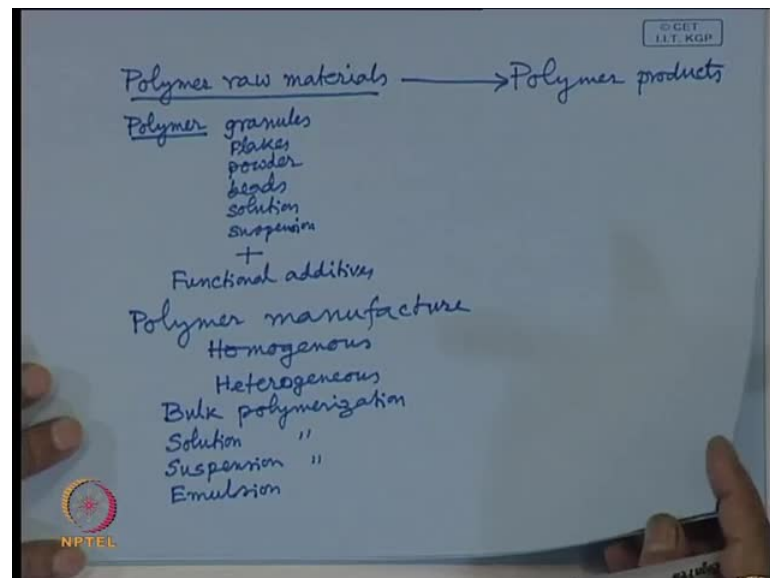 © CET
I.I.T. KGP
Polymer raw materials → Polymer products
Polymer granules
flakes
powder
beads
solution
suspension
+
Functional additives
Polymer manufacture
Homogenous
Heterogeneous
Bulk polymerization
Solution "
Suspension "
Emulsion
NPTEL